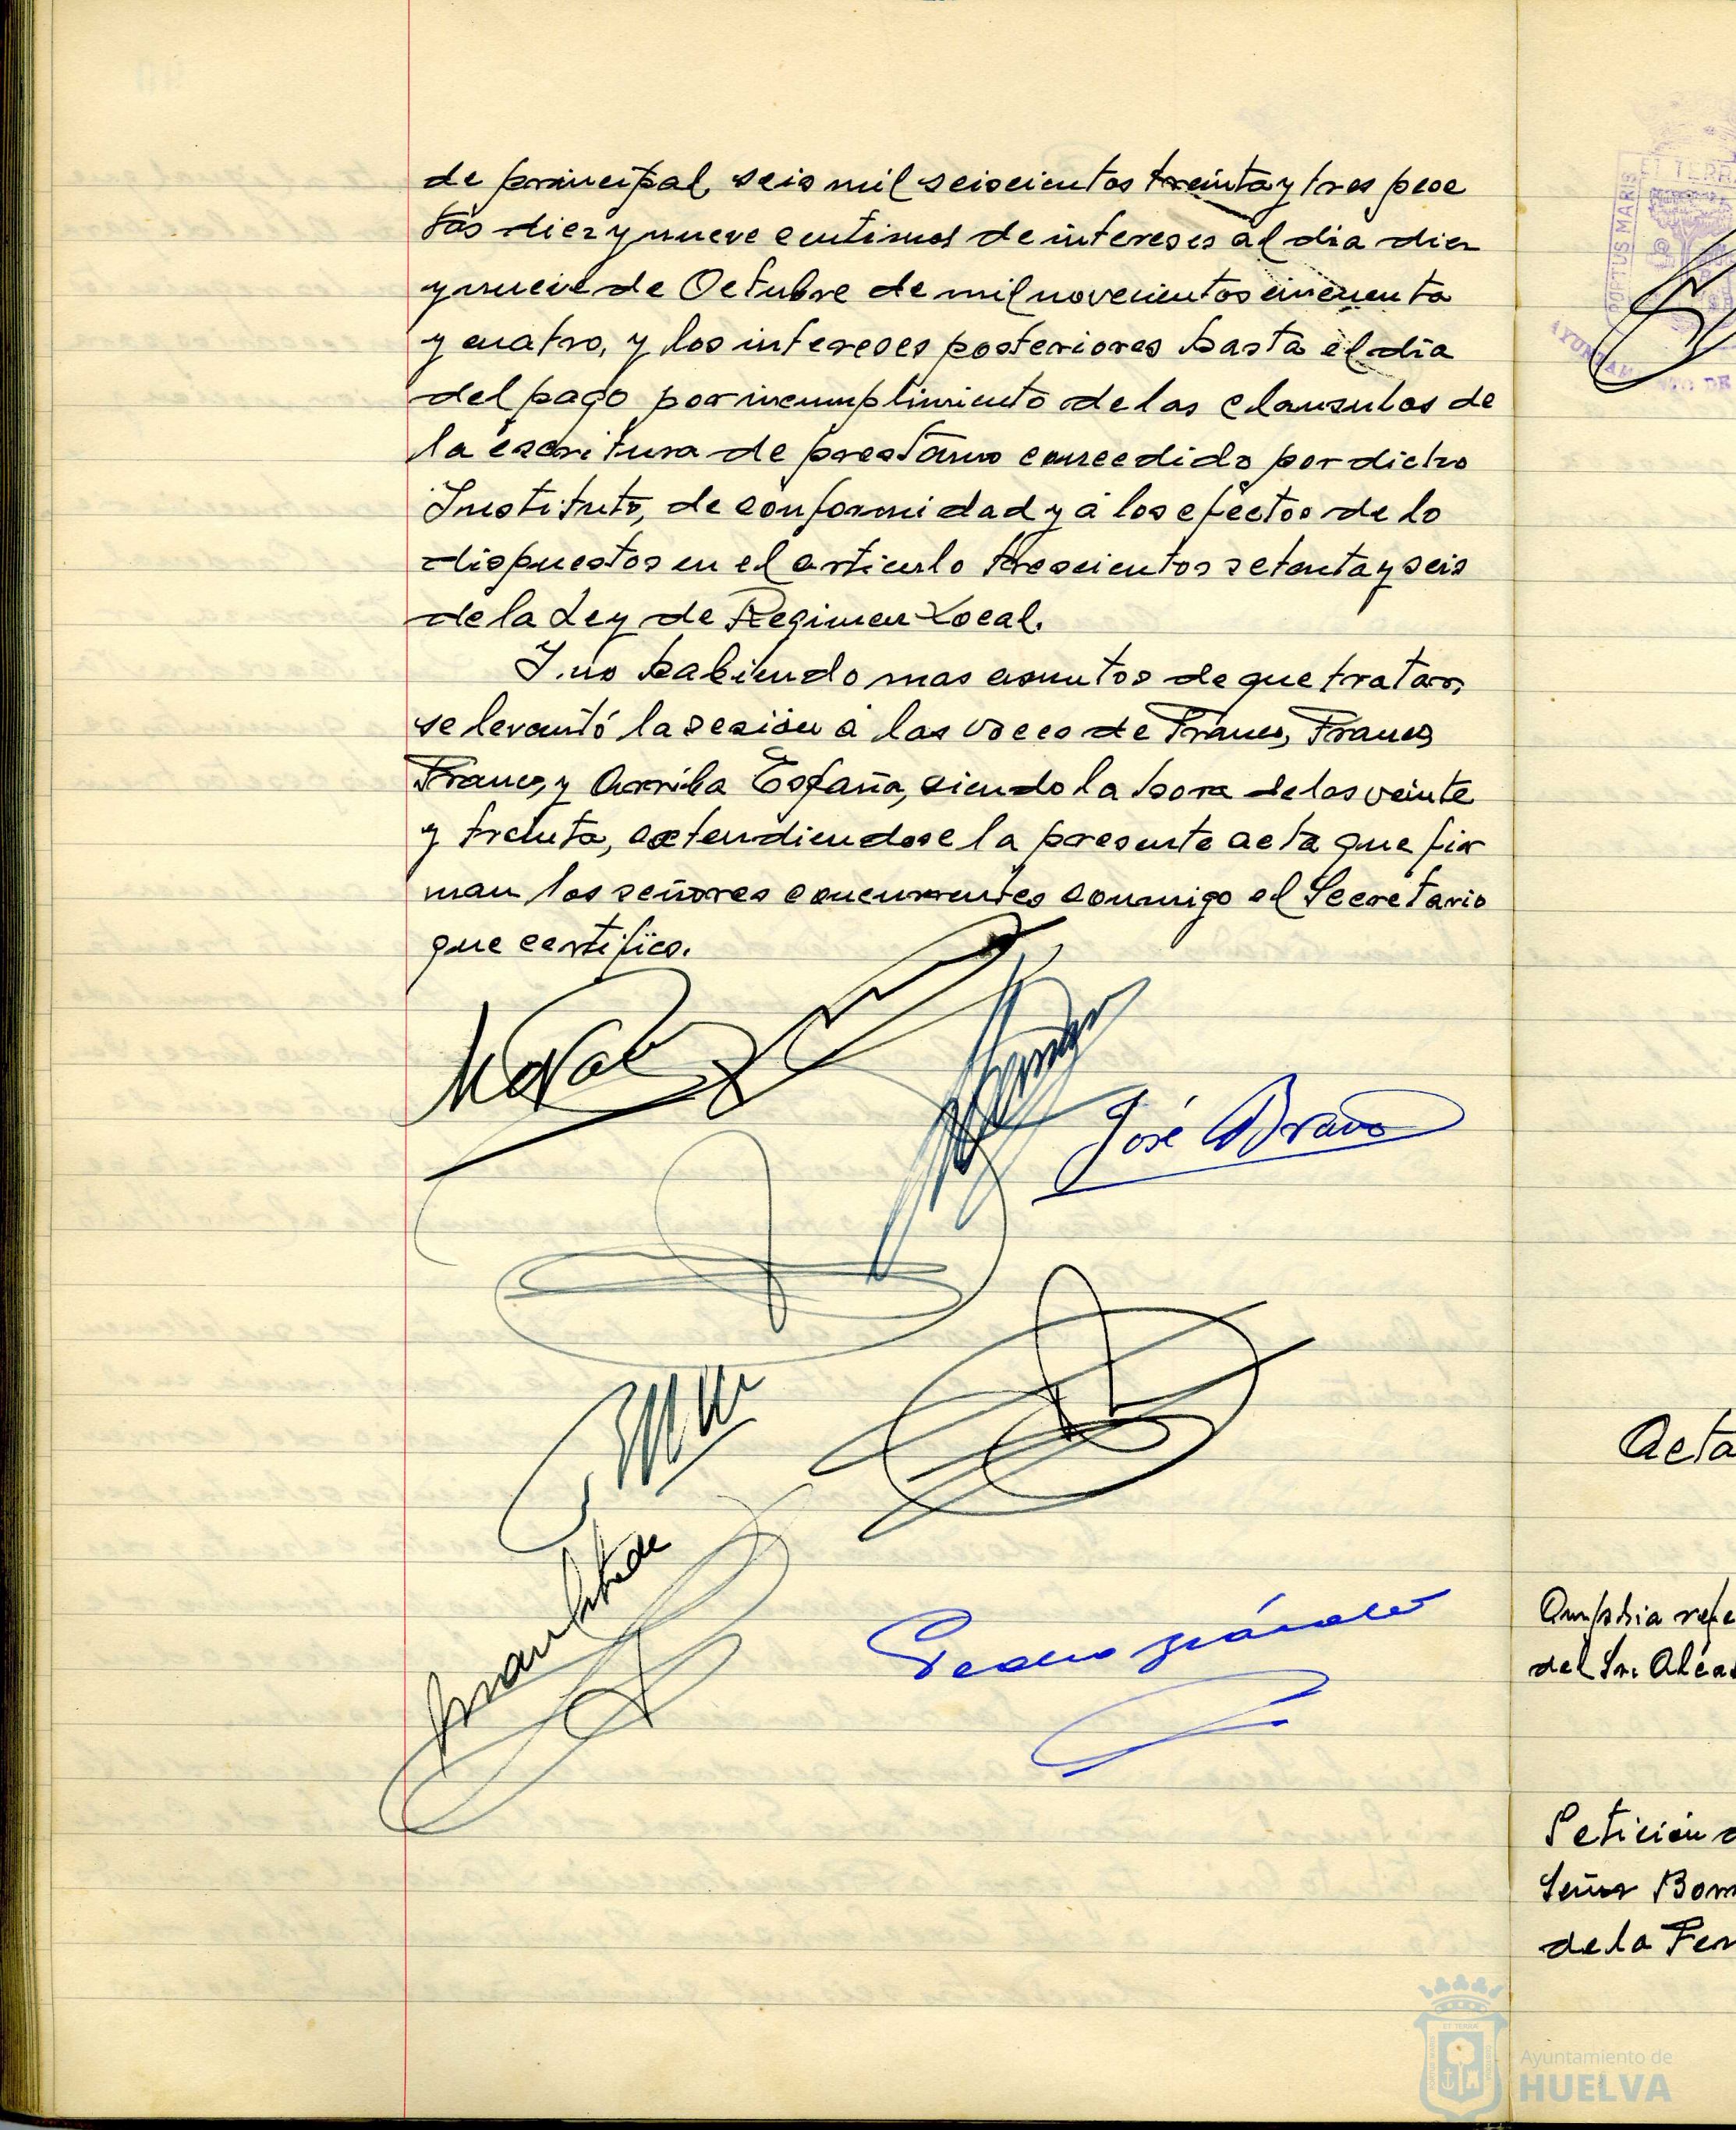 de principal, seis mil seiscientos treinta y tres pese
tas diez y nueve centimos de intereses al dia diez
y nueve de Octubre de mil novecientos cincuenta
y cuatro, y los intereses posteriores hasta el dia
del pago por incumplimiento de las clausulas de
la escritura de prestamo concedido por dicho
Instituto, de conformidad y a los efectos de lo
dispuestos en el articulo trescientos setenta y seis
de la Ley de Regimen Local.
Y no habiendo mas asuntos de que tratar,
se levantó la sesión a las voces de Franco, Franco,
Franco, y Arriba España, siendo la hora de las veinte
y treinta, extendiendose la presente acta que fir
man los señores concurrentes conmigo el Secretario
que certifico.
José Bravo
Pedro
ET TERRA
PORTUS MARIS
AYUNTAMIENTO DE
Acta
Amplia refe
del Sr. Alcal
Petición d
Señor Bom
de la Fer
Ayuntamiento de
HUELVA